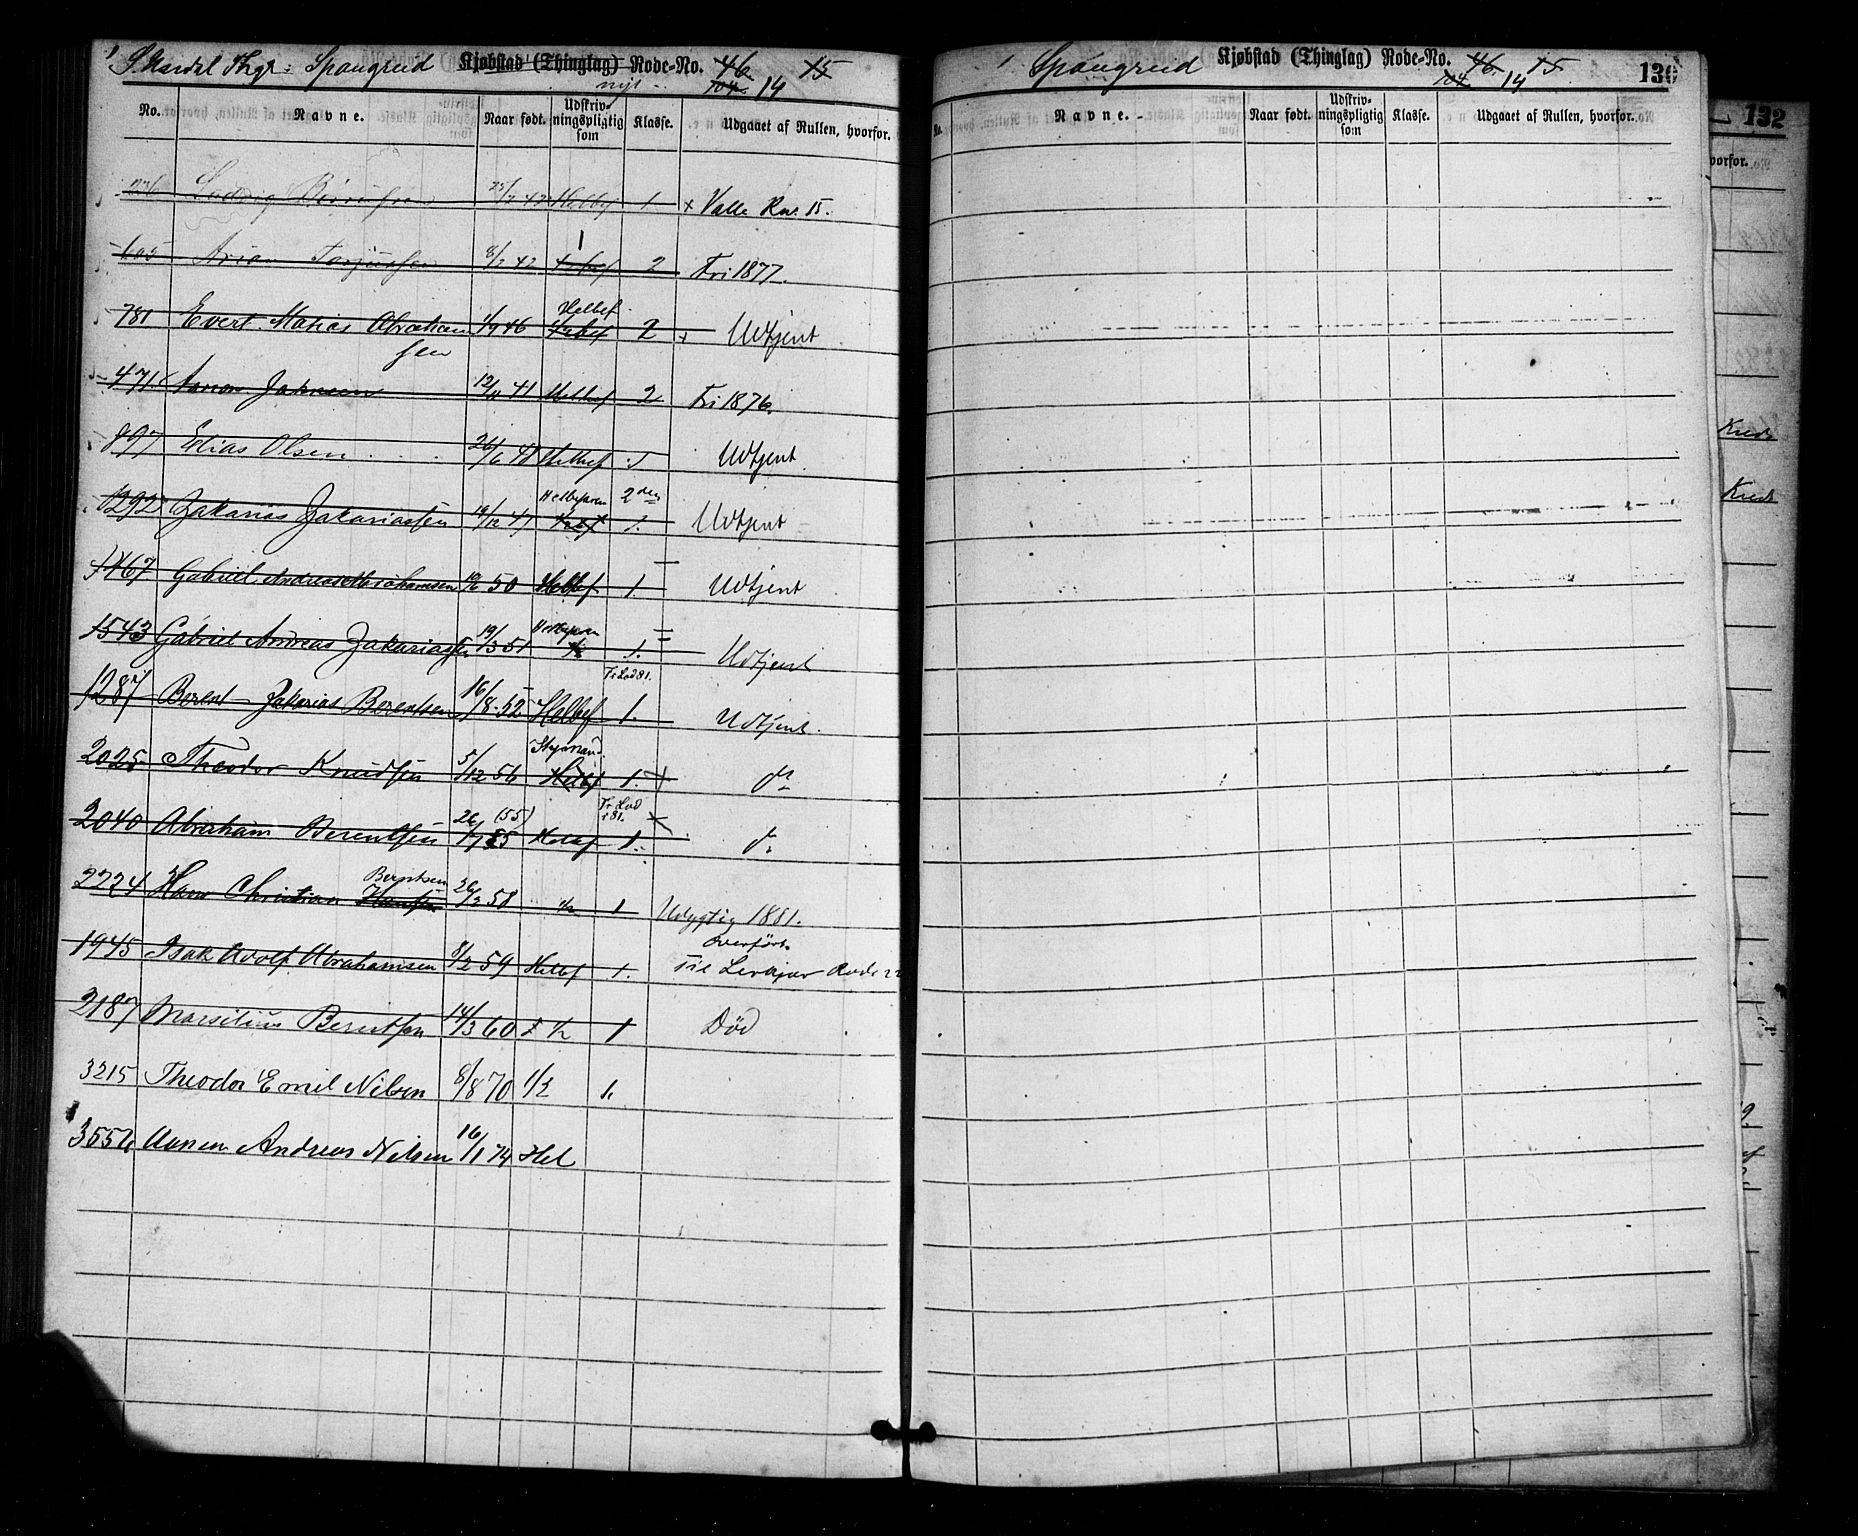 S. Undal Thgl: Spangreid Kjøbstad (Thinglag) Rode-No. 46. 15
nyt 104. 14
No. Navne. Naar født. Udskrivningspligtig som Klasse. Udgaaet af Rullen, hvorfor.
236 Ludvig 25/7 42 Helbef 1. x Valle Rno. 15.
605 Arian Tarjussen 8/2 42 2 Fri 1877.
Helbef
781 Evert Matias Abraham 1/9 46 2 Udtjent
sen
471. Jakobsen 12/11 41 Helbef 2 Fri 1876.
897 Elias Olsen 26/6 48 Helbef Udtjent
Helbefaren 2den
1292 Zakarias Zakariassen 19/12 47 1. Udtjent
1467 Gabriel Andreas Abrahamsen 50 Helbef 1. Udtjent
Helbefaren
1543 Gabriel Andreas Zakariassen 19/3 51 1/2 1. Udtjent
Fr. Lod 81.
1287 Berent Zakarias Berentsen 16/8 52 Helbef 1. Udtjent.
Styrmand
2025 Theodor Knudsen 5/12 56 Helbf 1. do
Fr. Lod
i 81.
2040 Abraham Berentsen 26/ (55) Helbf 1. do
Berntsen
2224 Hans Christian Hansen 26/2 58 1/2 1 Udygtig 1881.
Overført
1945 Isak Adolf Abrahamsen 8/2 59 Helbf 1. til Lervigen Rode 22
2187 Marselius Berentsen 14/3 60 1/2 1 Død
3215 Theodor Emil Nilsen 8/8 70 1/2 1.
3556 Aanen Andreas Nilsen 16/1 74 Hel
Spangreid Kjøbstad (Thinglag) Rode-No. 46. 15
104 14 130
No. Navne. Naar født. Udskrivningspligtig som Klasse. Udgaaet af Rullen, hvorfor.
132
hvorfor.
Kreds
Kreds